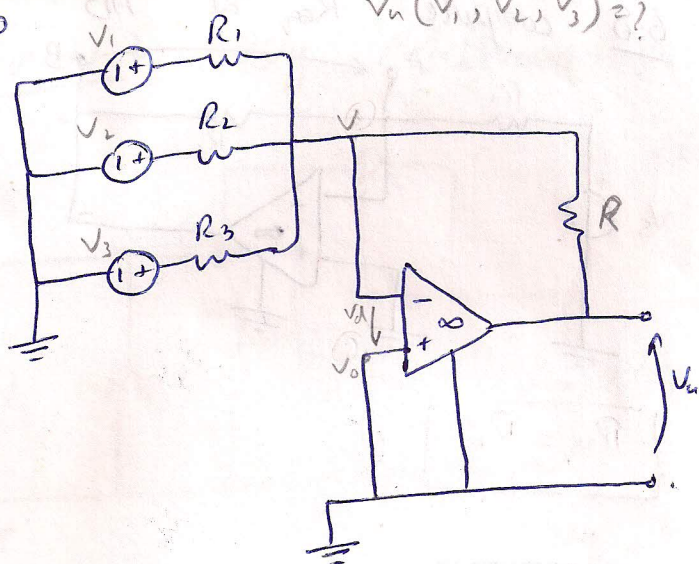 Vu (V1, V2, V3) = ?
V1
R1
V2
R2
V
V3
R3
R
Vd
-
∞
+
Vo
Vu